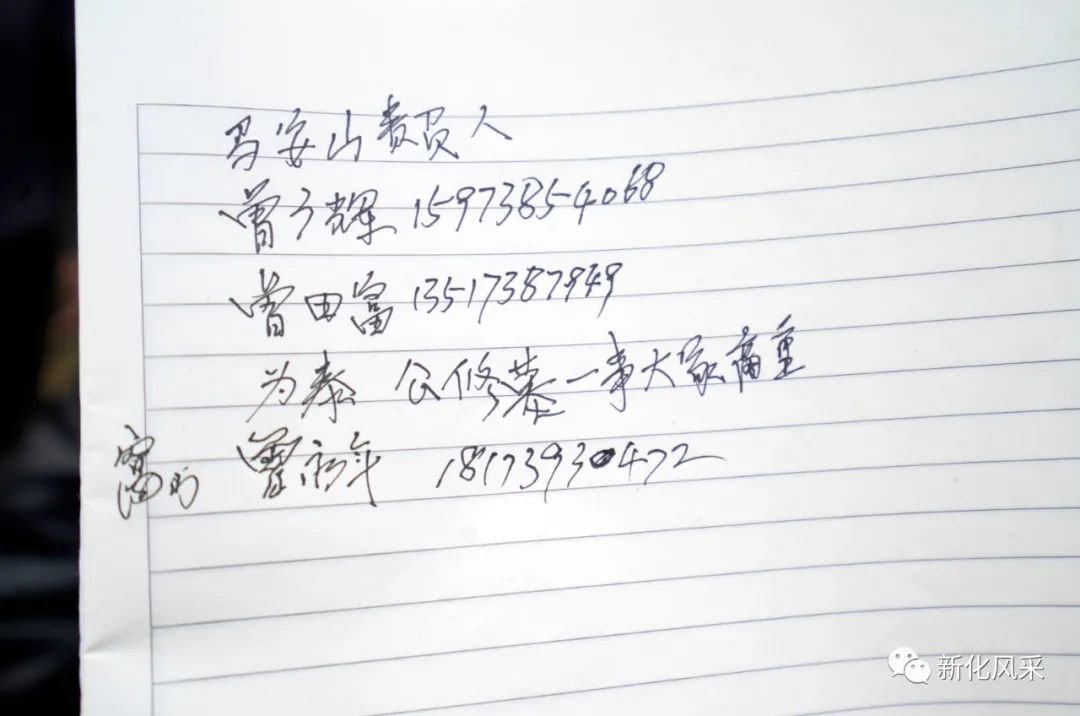 马安山责负人
曾子辉 15973854068
曾田富 13517387949
为泰公修墓一事大家商量
曾初年 18173930472
新化风采